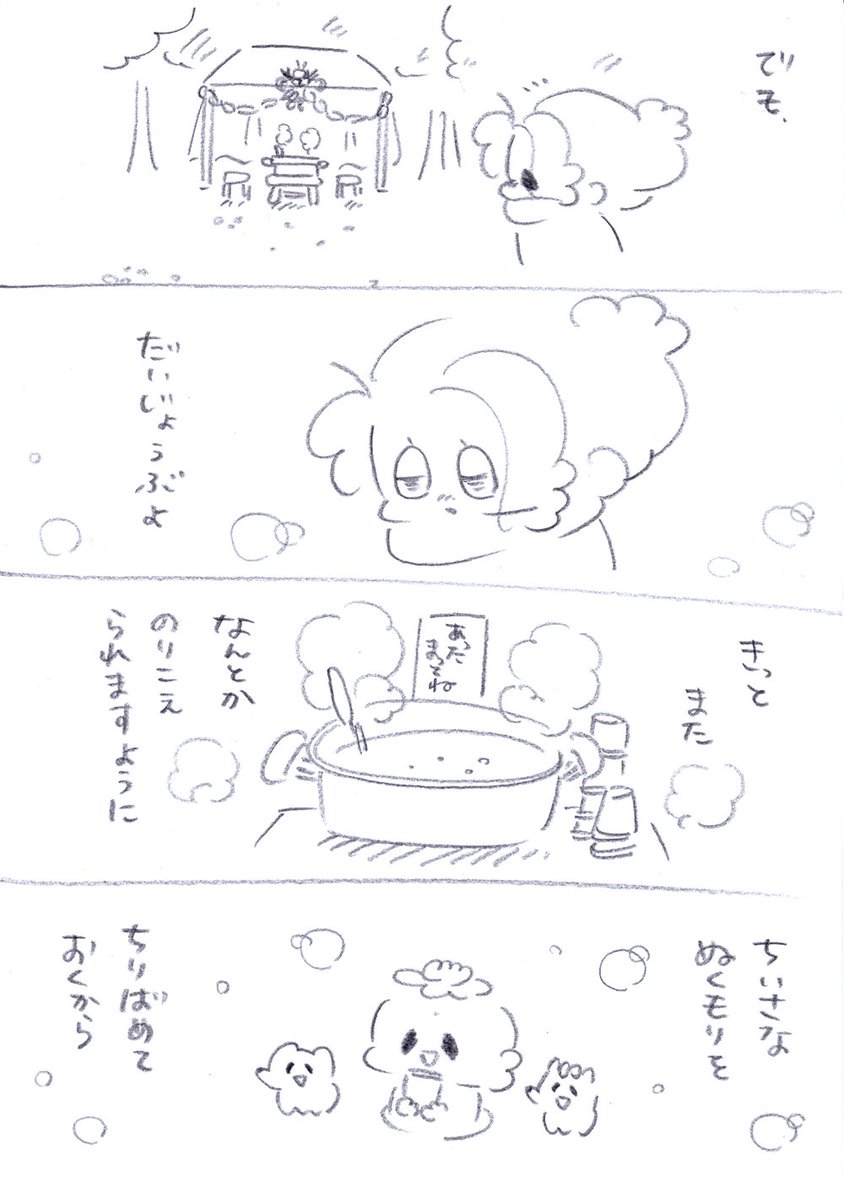 でも、
だいじょうぶよ
きっと
また
あった
まってね
なんとか
のりこえ
られますように
ちいさな
ぬくもりを
ちりばめて
おくから